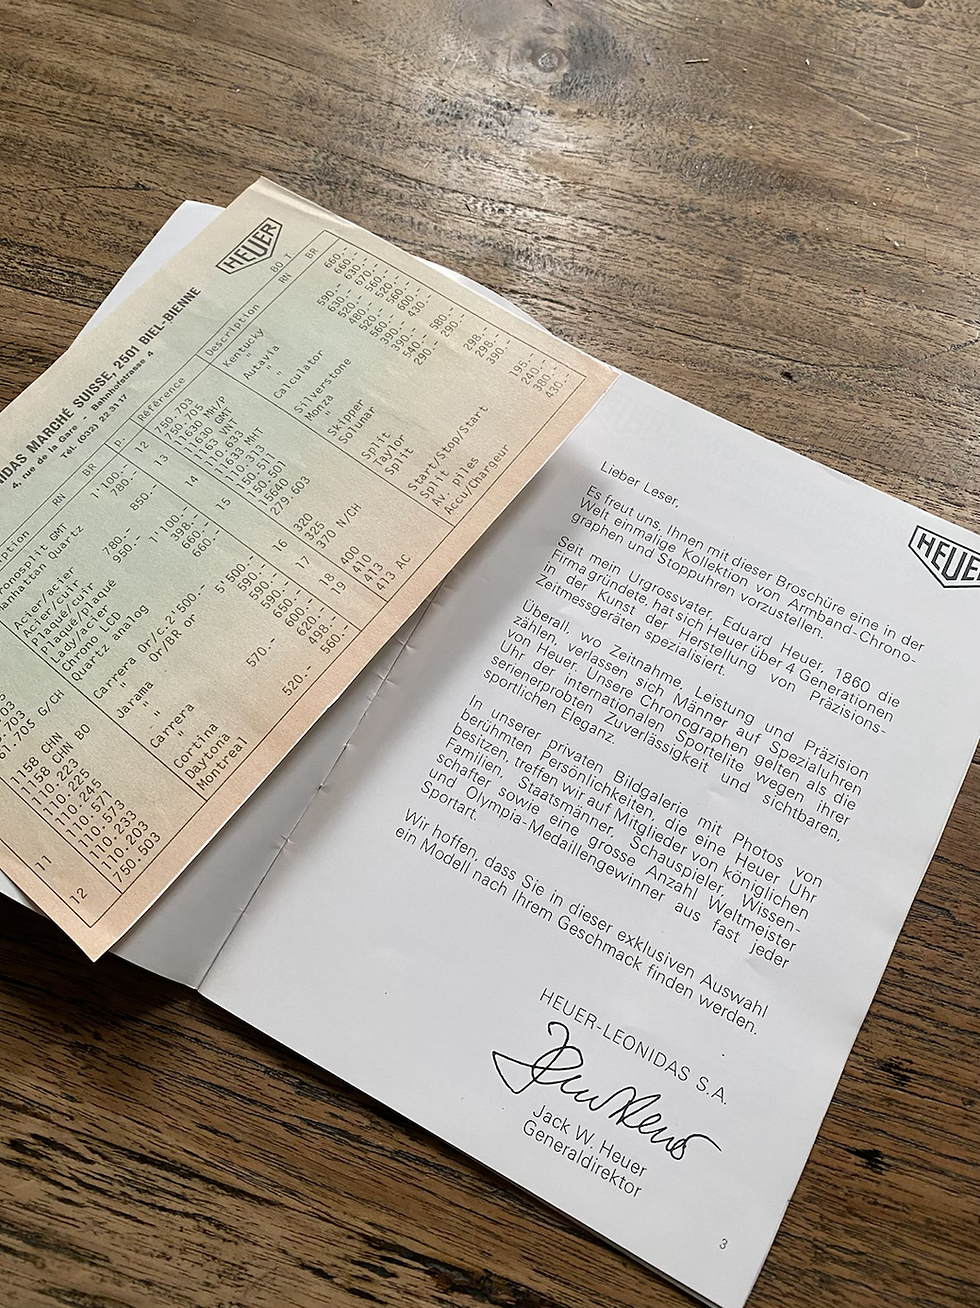 HEUER
NIDAS MARCHÉ SUISSE, 2501 BIEL-BIENNE
4, rue de la Gare - Bahnhofstrasse 4
Tél. (032) 22 31 17
RN BR
Chronosplit GMT 1'100.-
Manhattan Quartz 780.-
850.-
Acier/acier 780.-
Acier/cuir 950.-
Plaqué/cuir
Plaqué/plaqué
Lady/acier
Chrono LCD
Quartz analog
Carrera Or/c. 2'500.- 5'500.-
" Or/BR or
Jarama
"
"
Carrera
"
Cortina
Daytona
Montreal
1158 CHN
1158 CHN BO
110.223
110.225
110.245
110.571
110.573
110.233
110.203
750.503
11
12
p. Référence Description RN BO.T BR
12 750.703 Kentucky
750.705 "
11630 MH/P Autavia
13 11630 GMT "
1163 VNT "
110.633 Calculator
14 11633 MHT
110.313 Silverstone
150.511 Monza
150.501 "
15 15640 Skipper
279.603 Solunar
16 320 Split
325 Taylor
17 370 N/CH Split
18 400 Start/Stop/Start
19 410 Split
413 Av. piles
413 AC Accu/Chargeur
HEUER
Lieber Leser,
Es freut uns, Ihnen mit dieser Broschüre eine in der
Welt einmalige Kollektion von Armband-Chrono-
graphen und Stoppuhren vorzustellen.
Seit mein Urgrossvater, Eduard Heuer, 1860 die
Firma gründete, hat sich Heuer über 4 Generationen
in der Kunst der Herstellung von Präzisions-
Zeitmessgeräten spezialisiert.
Überall, wo Zeitnahme, Leistung und Präzision
zählen, verlassen sich Männer auf Spezialuhren
von Heuer. Unsere Chronographen gelten als die
Uhr der internationalen Sportelite wegen ihrer
serienerprobten Zuverlässigkeit und sichtbaren,
sportlichen Eleganz.
In unserer privaten Bildgalerie mit Photos von
berühmten Persönlichkeiten, die eine Heuer Uhr
besitzen, treffen wir auf Mitglieder von königlichen
Familien, Staatsmänner, Schauspieler, Wissen-
schafter sowie eine grosse Anzahl Weltmeister
und Olympia-Medaillengewinner aus fast jeder
Sportart.
Wir hoffen, dass Sie in dieser exklusiven Auswahl
ein Modell nach Ihrem Geschmack finden werden.
HEUER-LEONIDAS S.A.
Jack W. Heuer
Generaldirektor
3